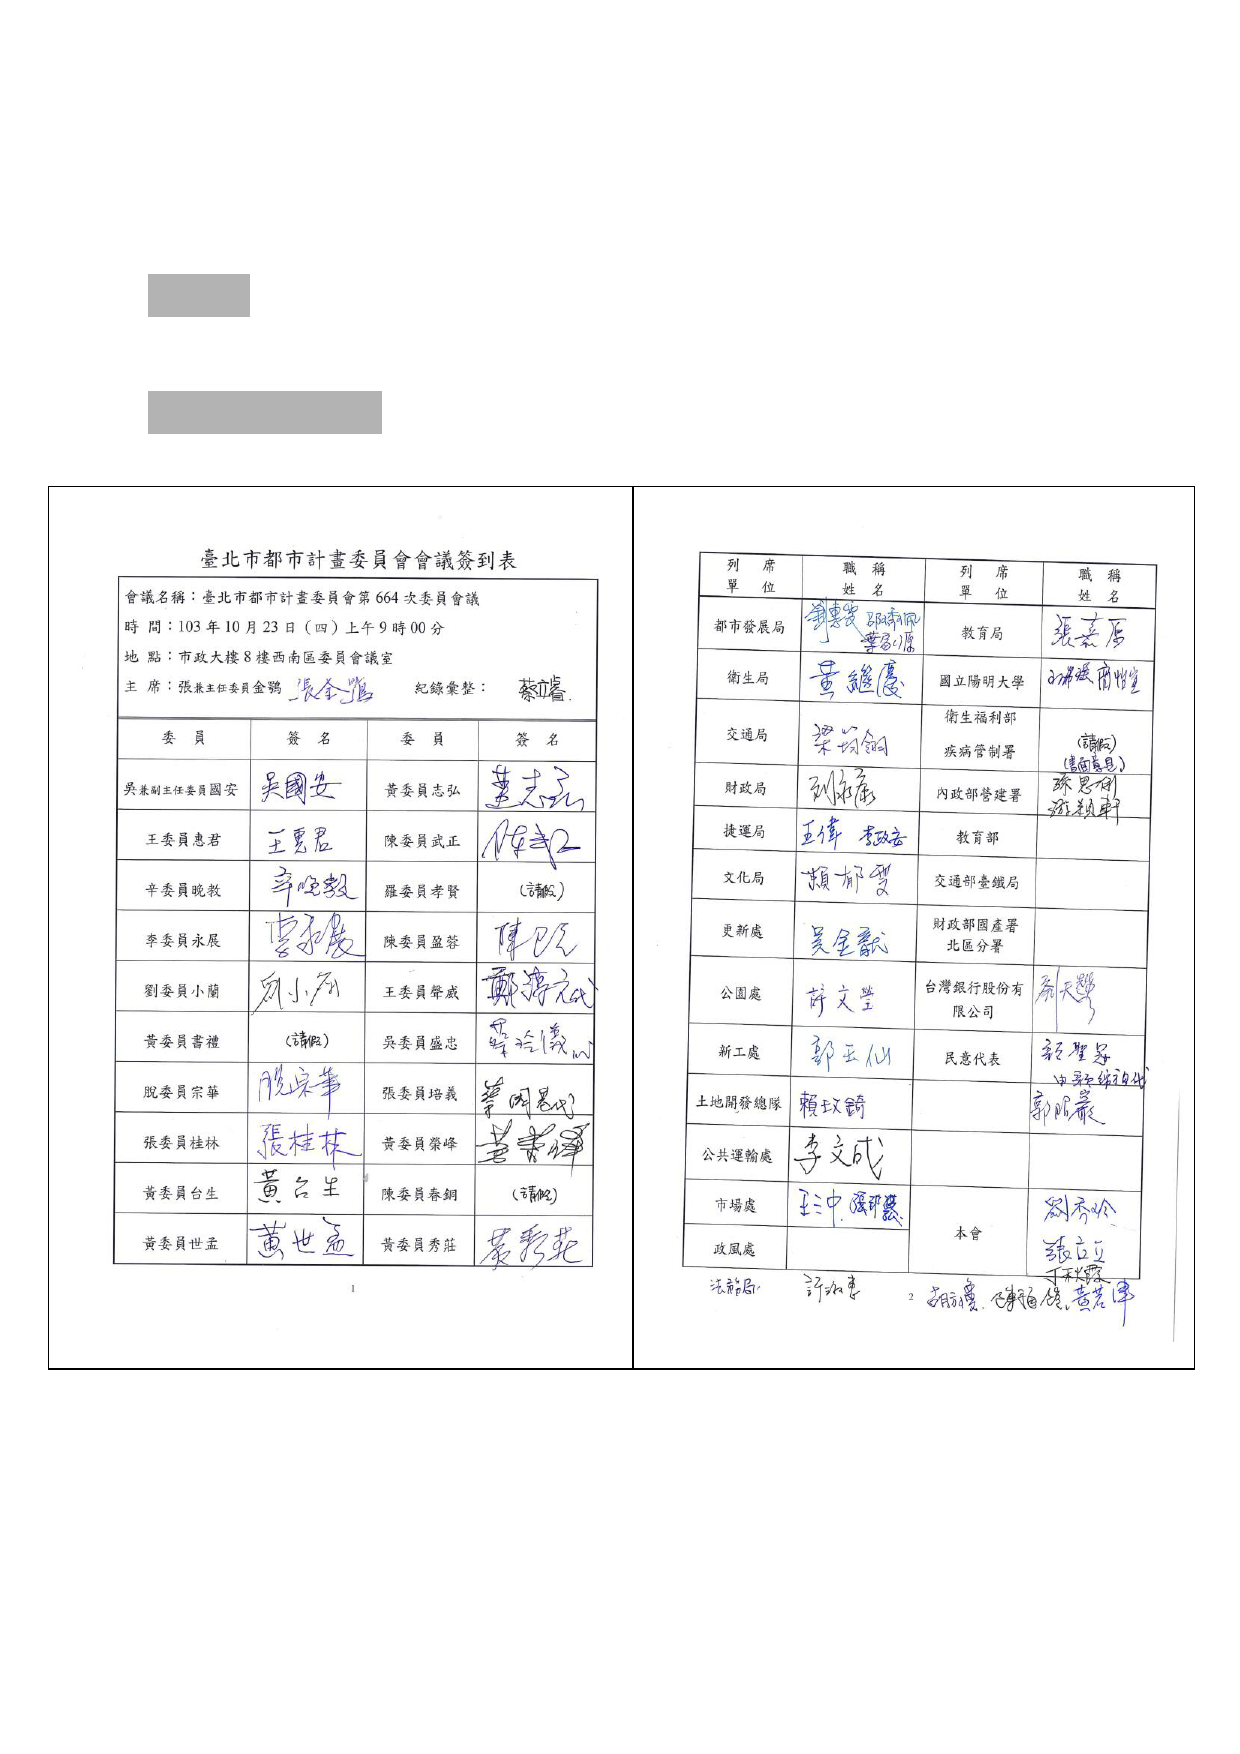 臺北市都市計畫委員會會議簽到表
會議名稱：臺北市都市計畫委員會第 664 次委員會議
時 間：103 年 10 月 23 日（四）上午 9 時 00 分
地 點：市政大樓 8 樓西南區委員會議室
主 席：張兼主任委員金鶚 張金鶚 紀錄彙整： 蔡立睿
委 員 簽 名 委 員 簽 名
吳兼副主任委員國安 吳國安 黃委員志弘 黃志弘
王委員惠君 王惠君 陳委員武正 陳武正
辛委員晚教 辛晚教 羅委員孝賢 (請假)
李委員永展 李永展 陳委員盈蓉
劉委員小蘭 劉小蘭 王委員聲威 鄭淳元代
黃委員書禮 (請假) 吳委員盛忠
脫委員宗華 脫宗華 張委員培義
張委員桂林 張桂林 黃委員榮峰 黃榮峰
黃委員台生 黃台生 陳委員春銅 (請假)
黃委員世孟 黃世孟 黃委員秀莊 黃秀莊
1
列 席 單 位 職 稱 姓 名 列 席 單 位 職 稱 姓 名
都市發展局 教育局 張嘉原
衛生局 黃繼慶 國立陽明大學
交通局 衛生福利部
疾病管制署 (請假)
(書面意見)
財政局 內政部營建署
捷運局 王偉 李政安 教育部
文化局 賴郁雯 交通部臺鐵局
更新處 財政部國產署
北區分署
公園處 台灣銀行股份有
限公司
新工處 郭玉仙 民意代表
土地開發總隊 賴玫錡 郭昭巖
公共運輸處 李文成
市場處 王三中 本會 劉秀玲
政風處 張立立
丁秋霖
法務局 2 胡方瓊 黃若津